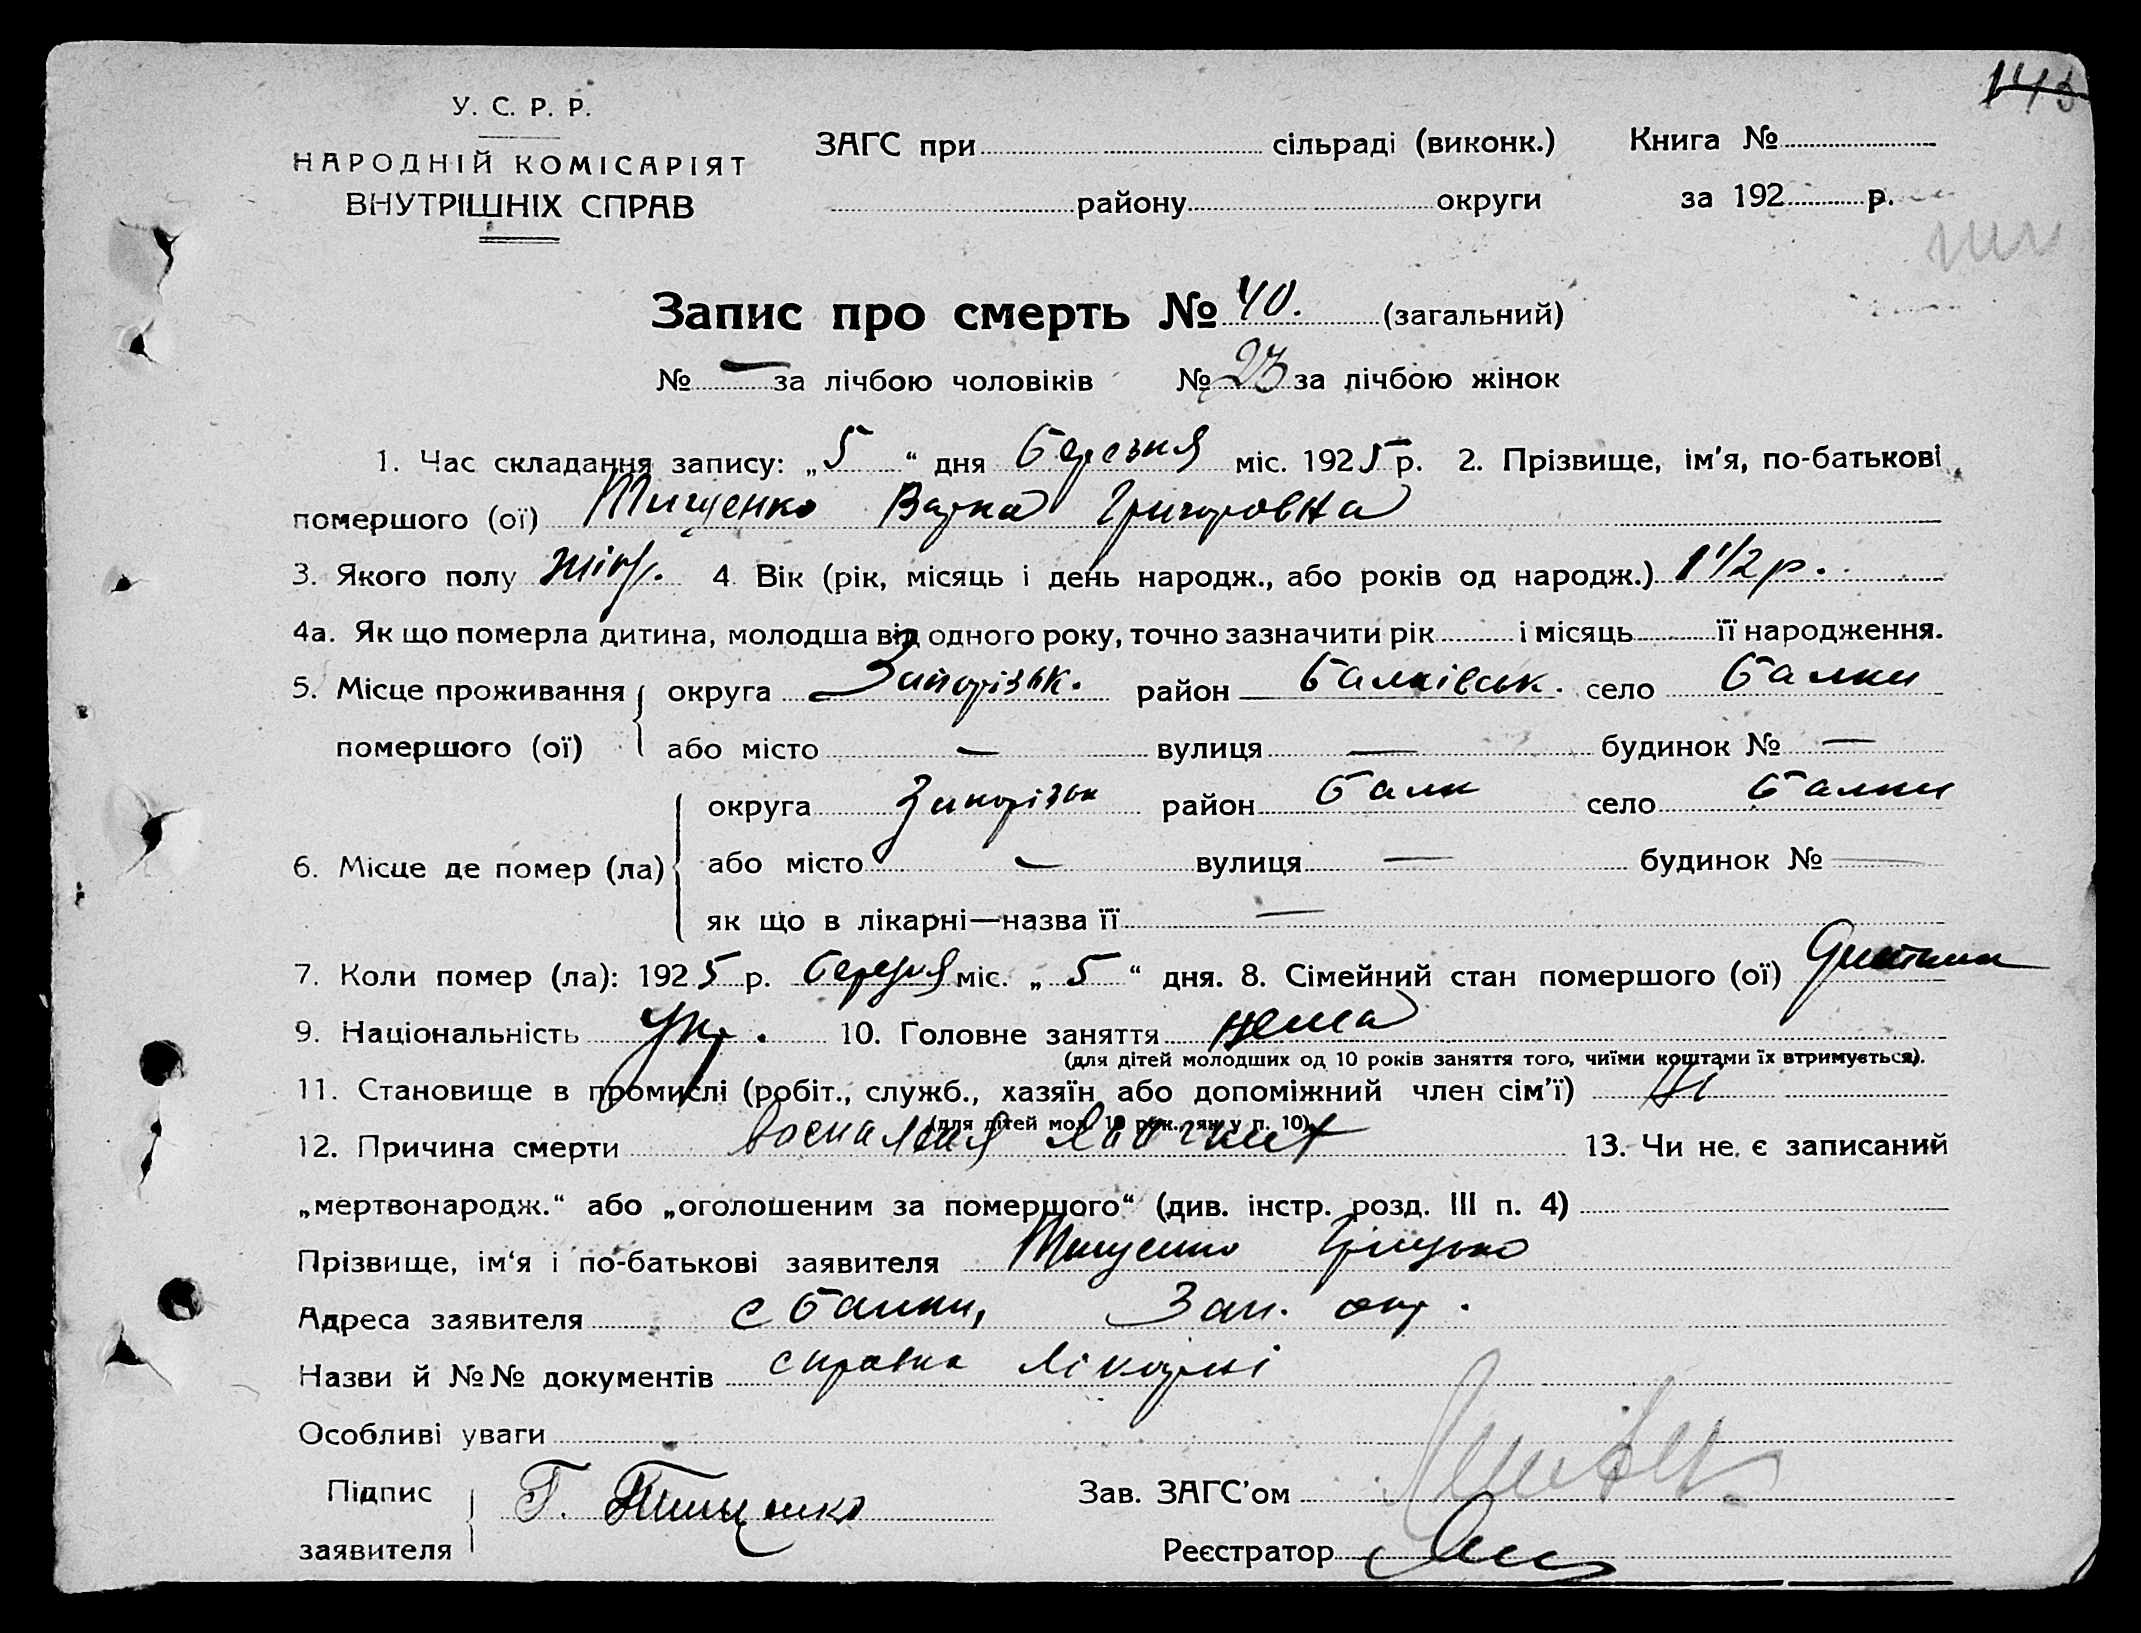 У. С. Р. Р.
НАРОДНІЙ КОМІСАРІЯТ
ВНУТРІШНІХ СПРАВ
ЗАГС при сільраді (виконк.) Книга №
району округи за 192 р.
Запис про смерть № 40. (загальний)
№ — за лічбою чоловіків № 23 за лічбою жінок
1. Час складання запису: „5“ дня березня міс. 1925 р. 2. Прізвище, ім'я, по-батькові
помершого (ої) Тищенко Варка Григоровна
3. Якого полу жін. 4 Вік (рік, місяць і день народж., або років од народж.) 1 1/2 р.
4а. Як що померла дитина, молодша від одного року, точно зазначити рік і місяць її народження.
5. Місце проживання округа Запорізьк. район Балківськ. село Балки
помершого (ої) або місто — вулиця — будинок № —
округа Запорізьк район Балк село Балки
6. Місце де помер (ла) або місто — вулиця — будинок № —
як що в лікарні—назва її —
7. Коли помер (ла): 1925 р. березня міс. „5“ дня. 8. Сімейний стан помершого (ої) дитина
9. Національність Укр. 10. Головне заняття нема
(для дітей молодших од 10 років заняття того, чиїми коштами їх втримується).
11. Становище в промислі (робіт., служб., хазяїн або допоміжний член сім'ї) Ні
(для дітей мол. 10 рок., як у п. 10)
12. Причина смерти воспаления 13. Чи не є записаний
„мертвонародж.“ або „оголошеним за помершого“ (див. інстр. розд. III п. 4)
Прізвище, ім'я і по-батькові заявителя Тищенко Грицько
Адреса заявителя с Балки, Зап. окр.
Назви й №№ документів справка лікарні
Особливі уваги
Підпис заявителя Г. Тищенко Зав. ЗАГС'ом
Реєстратор